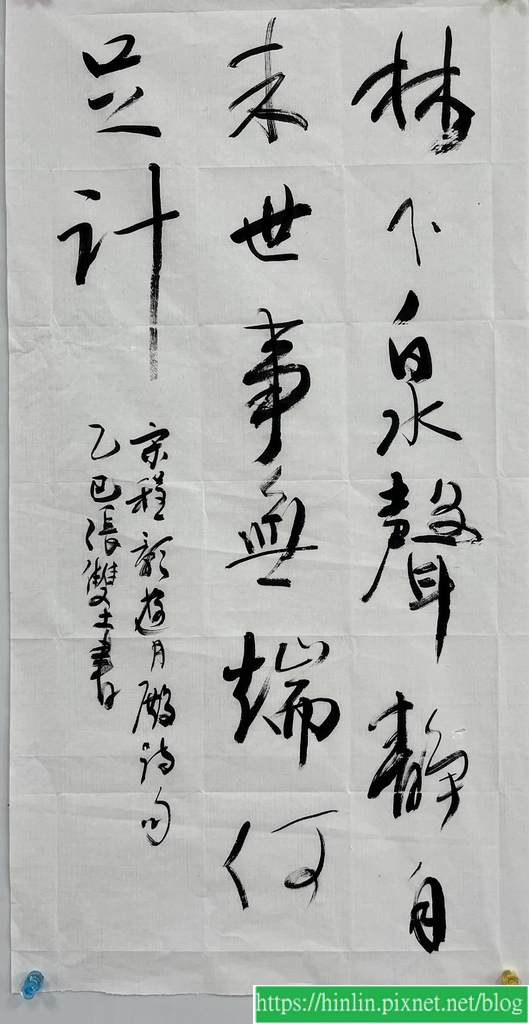 林下泉聲靜自
来世事無端何
足計
宋程顥遊月陂詩句
乙巳張雙土書
https://hinlin.pixnet.net/blog